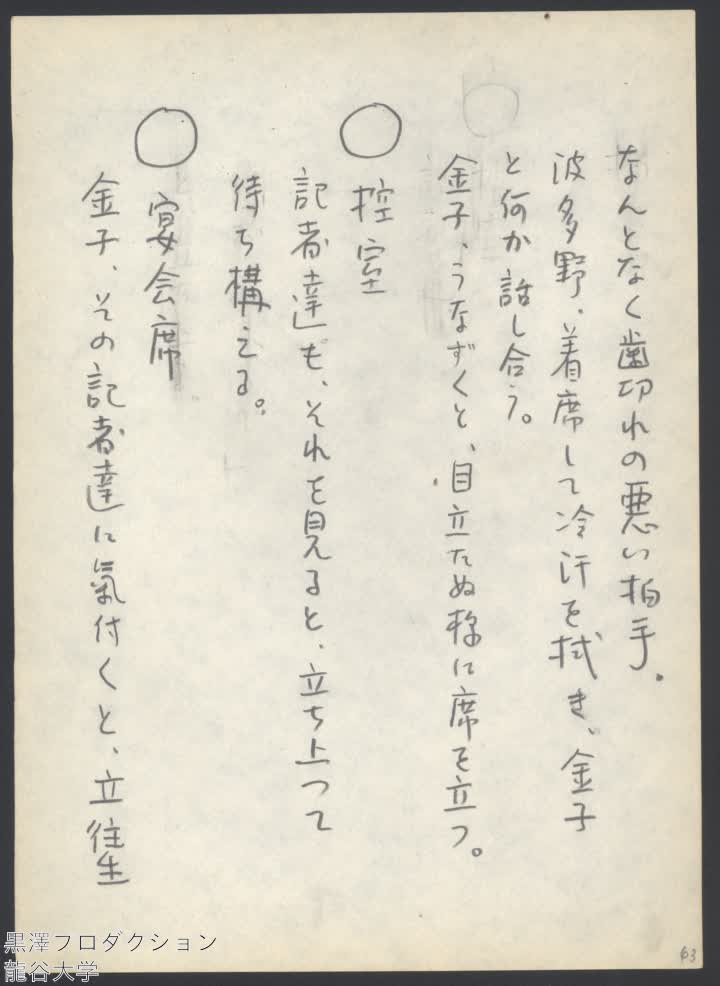 なんとなく歯切れの悪い拍手。
波多野、着席して冷汗を拭き、金子
と何か話し合う。
金子、うなずくと、目立たぬ様に席を立つ。
○ 控室
記者達も、それを見ると、立ち上つて
待ち構える。
○ 宴会席
金子、その記者達に氣付くと、立往生
63
黒澤プロダクション
龍谷大学